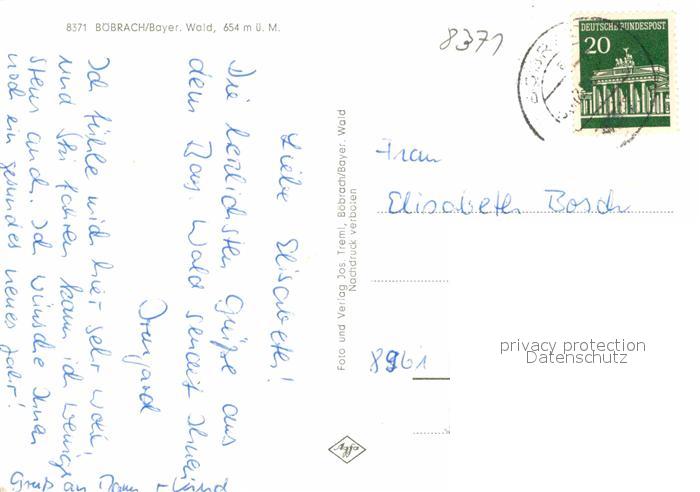 8371 BÖBRACH/Bayer. Wald, 654 m ü. M.
8371
DEUTSCHE BUNDESPOST
20
Liebe Elisabeth!
Die herzlichsten Grüße aus
dem Bay. Wald sendet Ihnen
Irmgard
Ich fühle mich hier sehr wohl,
und Ski fahren kann ich wenig
stens auch. Ich wünsche Ihnen
noch ein gesundes neues Jahr!
Gruß an Mann + Kind
Foto und Verlag Jos. Treml, Böbrach/Bayer. Wald
Nachdruck verboten
Frau
Elisabeth Bosch
8961
privacy protection
Datenschutz
Agfa